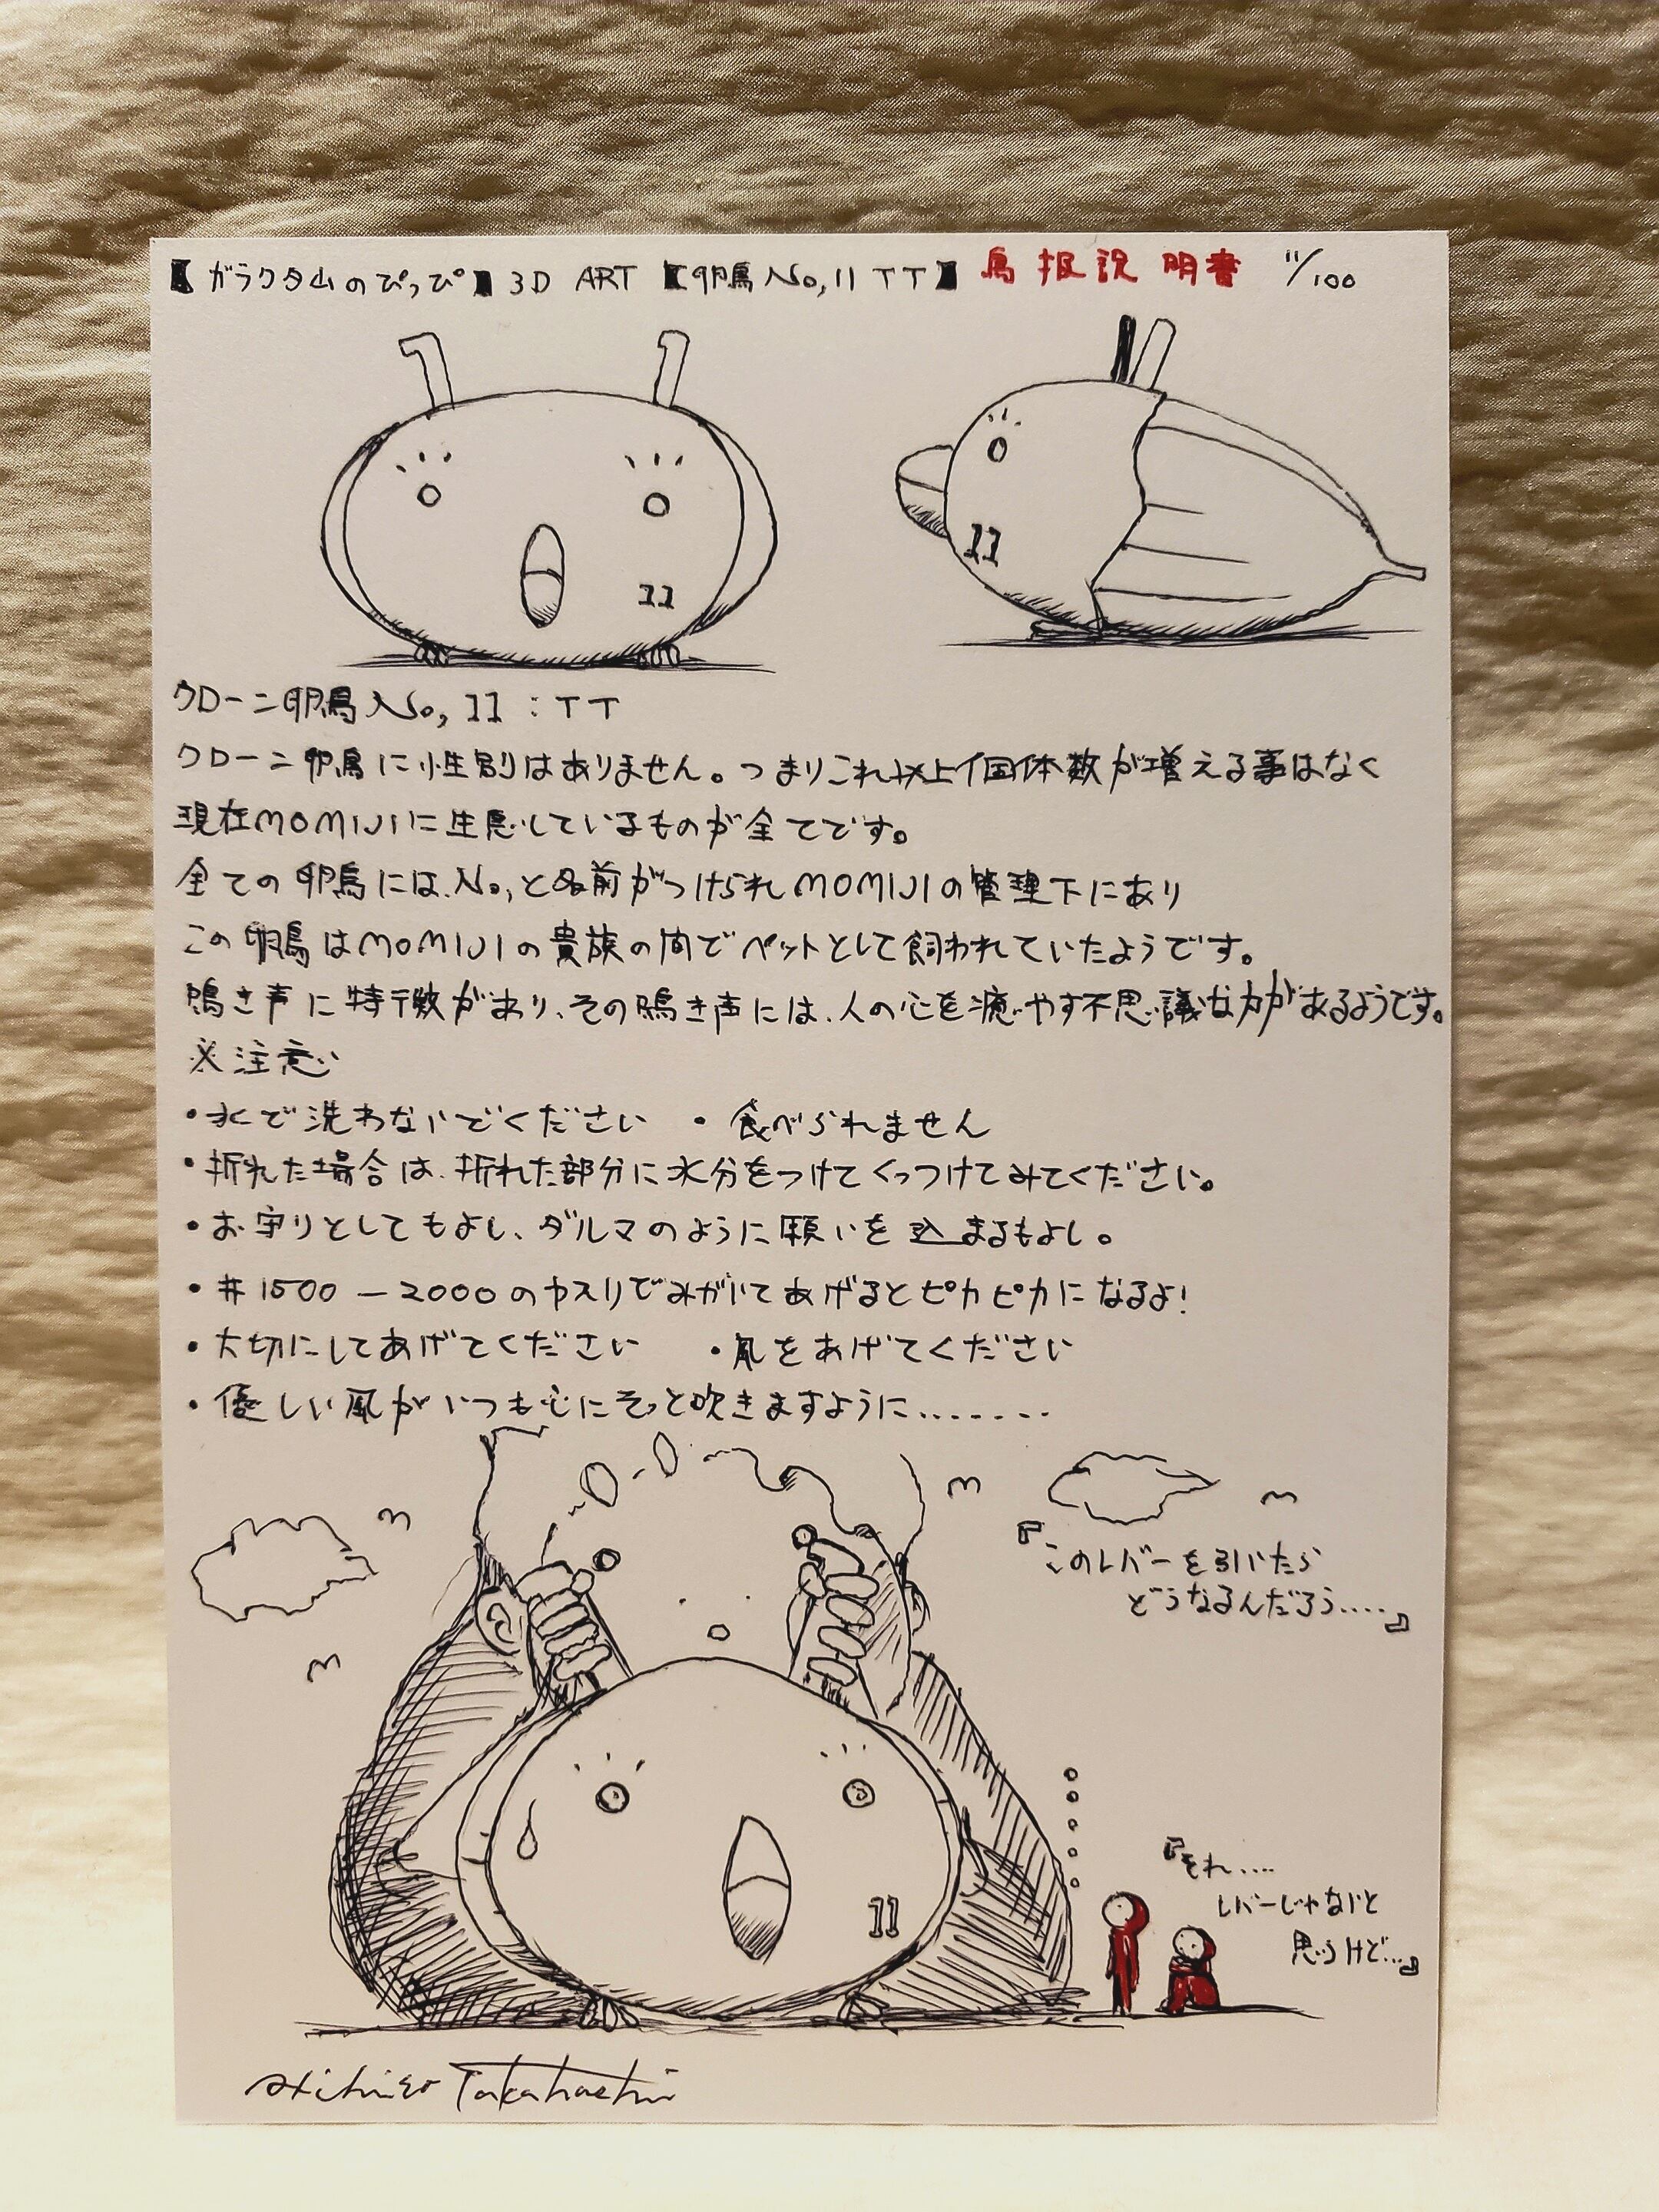 【ガラクタ山のぴっぴ】3D ART【卵鳥No,11 TT】鳥扱説明書 11/100
11
11
クローン卵鳥No,11:TT
クローン卵鳥に性別はありません。つまりこれ以上個体数が増える事はなく
現在MOMIJIに生息しているものが全てです。
全ての卵鳥には、No,と名前がつけられMOMIJIの管理下にあり
この卵鳥はMOMIJIの貴族の間でペットとして飼われていたようです。
鳴き声に特徴があり、その鳴き声には、人の心を癒やす不思議な力があるようです。
※注意
・水で洗わないでください ・食べられません
・折れた場合は、折れた部分に水分をつけてくっつけてみてください。
・お守りとしてもよし、ダルマのように願いを込まるもよし。
・#1500-2000のヤスリでみがいてあげるとピカピカになるよ!
・大切にしてあげてください ・風をあげてください
・優しい風がいつも心にそっと吹きますように.......
『このレバーを引いたら
どうなるんだろう....』
『それ....
レバーじゃないと
思うけど...』
11
Akihiro Takahashi